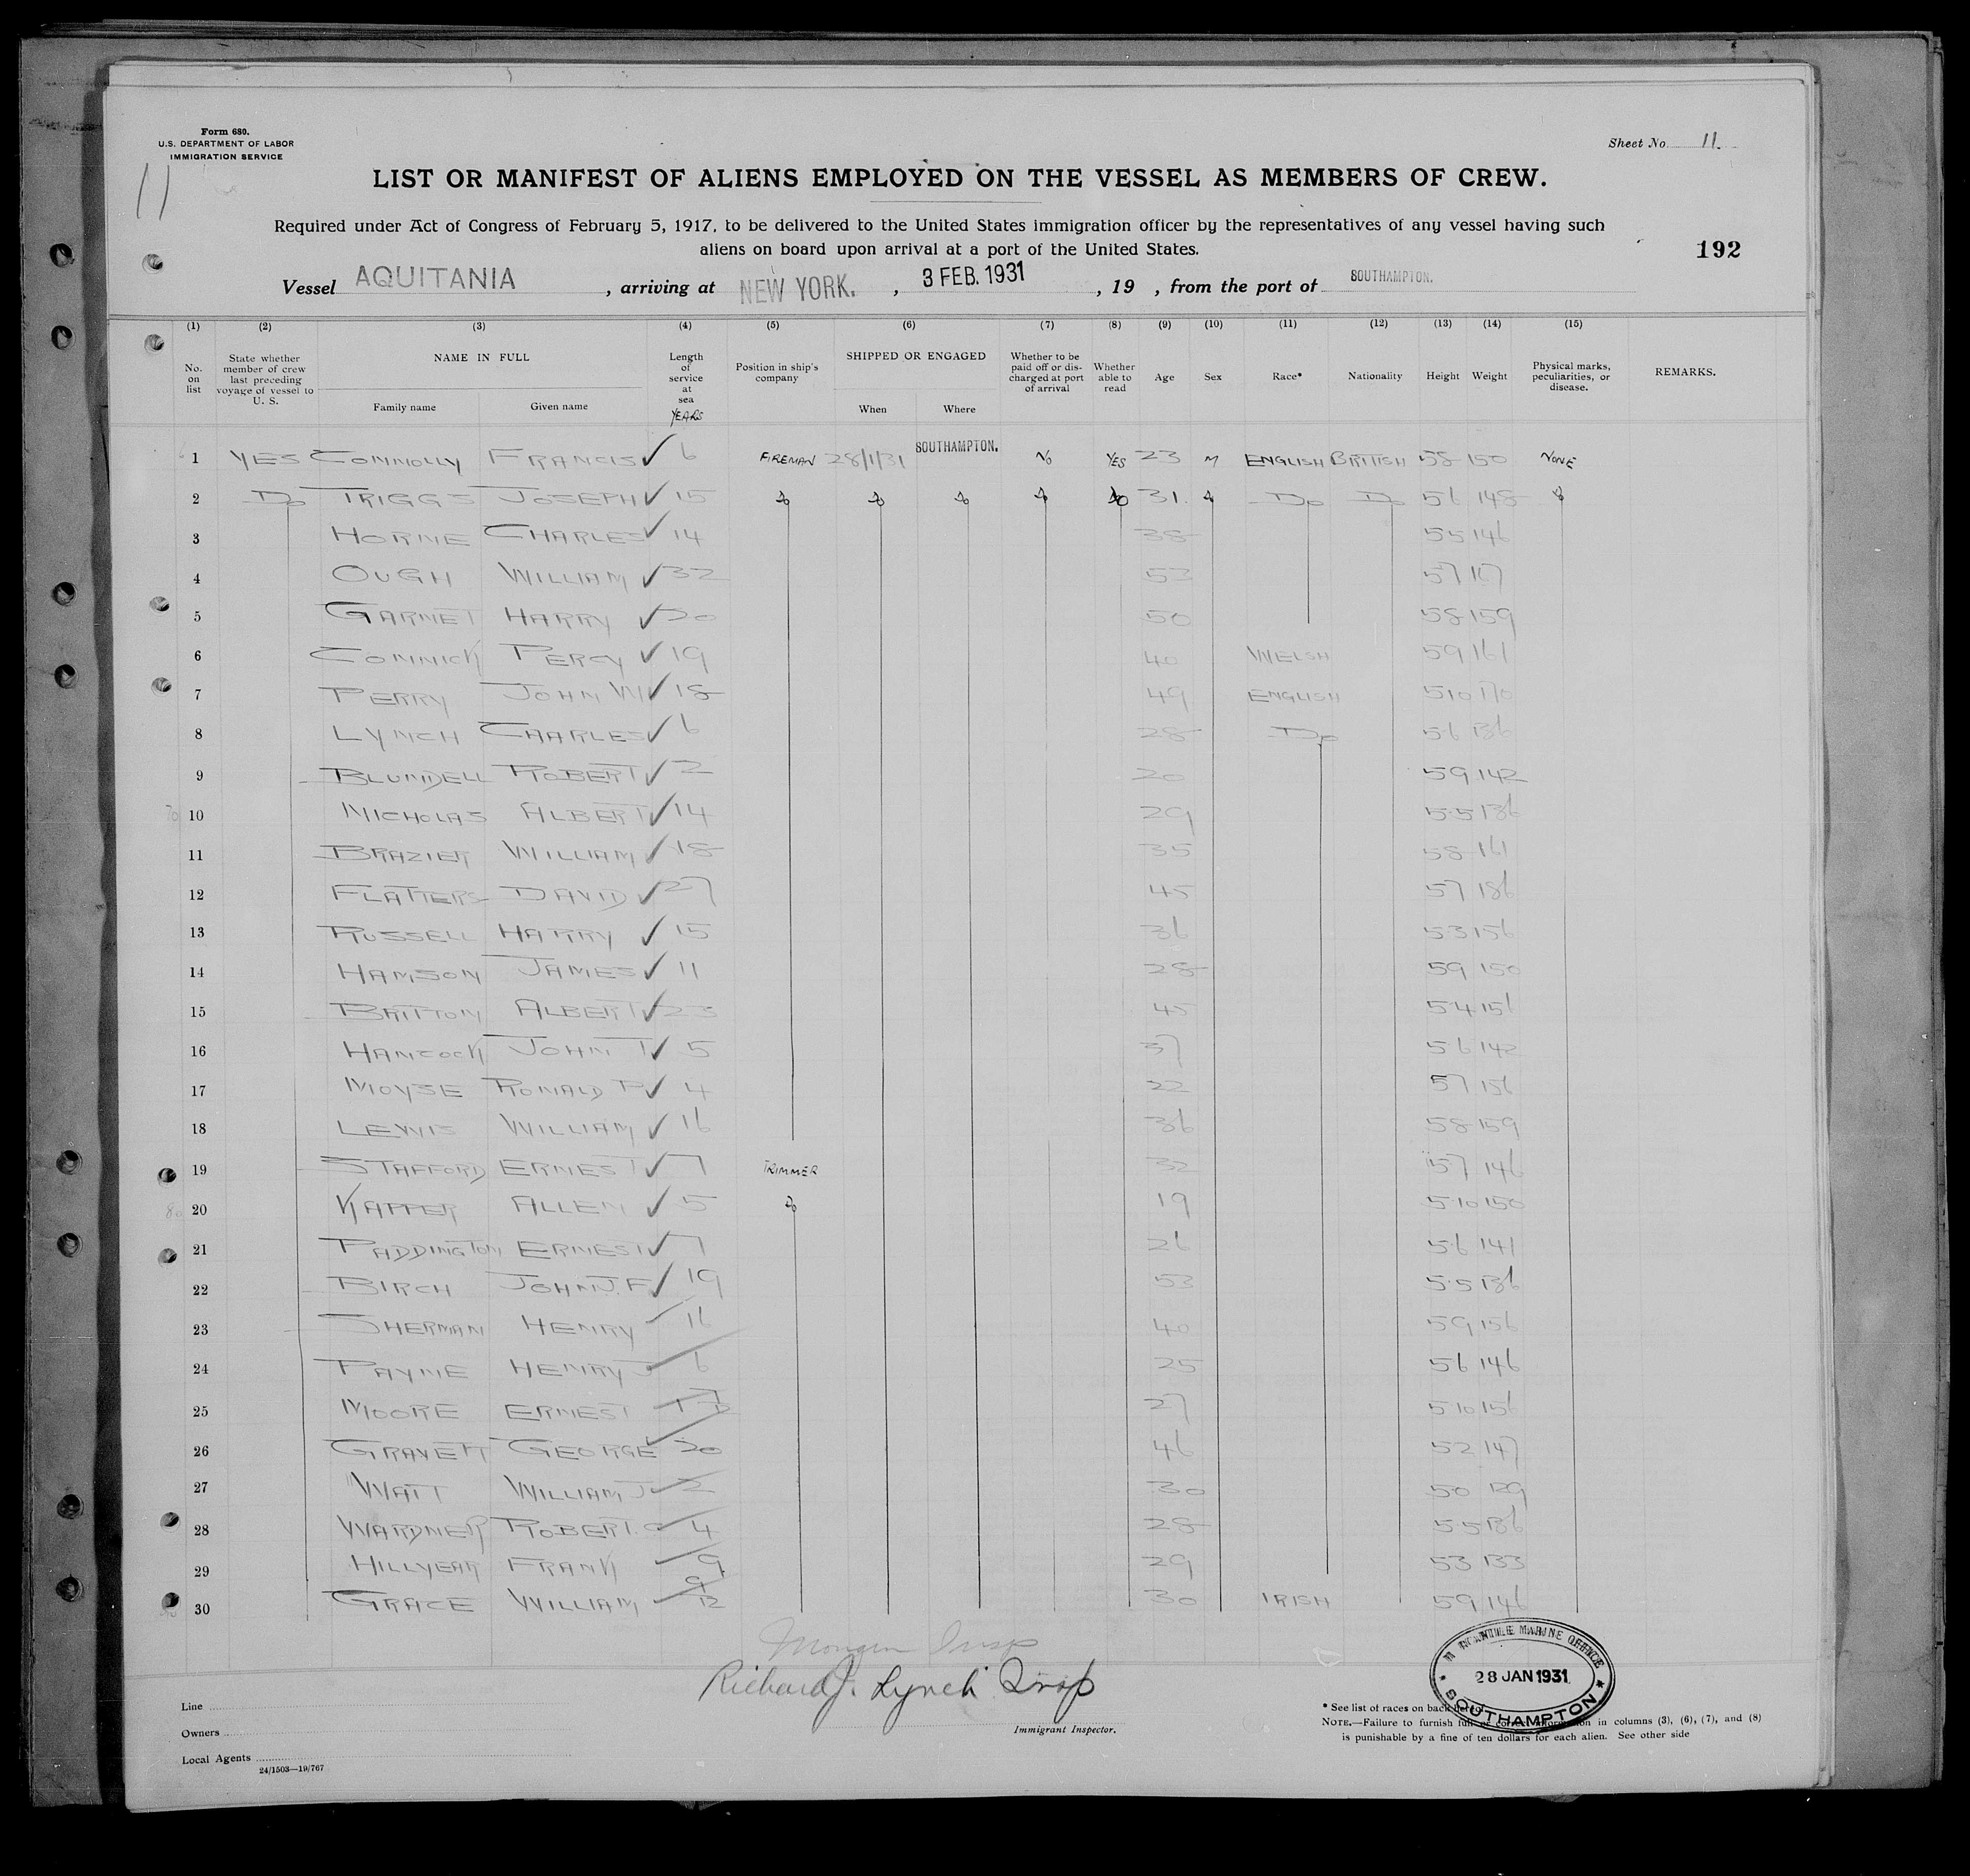 Form 680.
U.S. DEPARTMENT OF LABOR
IMMIGRATION SERVICE
11
Sheet No. 11.
LIST OR MANIFEST OF ALIENS EMPLOYED ON THE VESSEL AS MEMBERS OF CREW.
Required under Act of Congress of February 5, 1917, to be delivered to the United States immigration officer by the representatives of any vessel having such
aliens on board upon arrival at a port of the United States.
192
Vessel AQUITANIA, arriving at NEW YORK., 3 FEB. 1931, 19 , from the port of SOUTHAMPTON.
(1) (2) (3) (4) (5) (6) (7) (8) (9) (10) (11) (12) (13) (14) (15)
No. on list State whether member of crew last preceding voyage of vessel to U. S. NAME IN FULL Family name Given name Length of service at sea YEARS Position in ship's company SHIPPED OR ENGAGED When Where Whether to be paid off or discharged at port of arrival Whether able to read Age Sex Race* Nationality Height Weight Physical marks, peculiarities, or disease. REMARKS.
1 YES CONNOLLY FRANCIS ✓ 6 FIREMAN 28/1/31 SOUTHAMPTON. NO YES 23 M ENGLISH BRITISH 58 150 NONE
2 DO TRIGGS JOSEPH ✓ 15 DO DO DO DO DO 31. DO DO DO 56 148 DO
3 HORNE CHARLES ✓ 14 38 55 146
4 OUGH WILLIAM ✓ 32 53 57 167
5 GARNET HARRY ✓ 20 50 58 159
6 CONNICK PERCY ✓ 19 40 WELSH 59 161
7 PERRY JOHN W ✓ 18 49 ENGLISH 510 170
8 LYNCH CHARLES ✓ 6 28 DO 56 136
9 BLUNDELL ROBERT ✓ 2 20 59 142
10 NICHOLAS ALBERT ✓ 14 29 55 136
11 BRAZIER WILLIAM ✓ 18 35 58 161
12 FLATTERS DAVID ✓ 27 45 57 186
13 RUSSELL HARRY ✓ 15 36 53 156
14 HAMSON JAMES ✓ 11 28 59 150
15 BRITTON ALBERT ✓ 23 45 54 156
16 HANCOCK JOHN T ✓ 5 37 56 142
17 MOYSE RONALD P ✓ 4 22 57 156
18 LEWIS WILLIAM ✓ 16 36 58 159
19 STAFFORD ERNEST ✓ 7 TRIMMER 32 57 146
20 KAPPER ALLEN ✓ 5 DO 19 510 150
21 PADDINGTON ERNEST ✓ 7 26 56 141
22 BIRCH JOHN J. F. ✓ 19 53 55 136
23 SHERMAN HENRY 16 40 59 156
24 PAYNE HENRY J 6 25 56 146
25 MOORE ERNEST 27 510 156
26 GRAVETT GEORGE 20 46 52 147
27 WATT WILLIAM J 2 30 50 129
28 WARDNER ROBERT. C 4 28 55 136
29 HILLYEAR FRANK 9 29 53 133
30 GRACE WILLIAM 9/12 30 IRISH 59 146
Richard J. Lynch Insp
Immigrant Inspector.
MERCANTILE MARINE OFFICE
28 JAN 1931
SOUTHAMPTON
Line
Owners
Local Agents
24/1503—19/767
* See list of races on back hereof.
NOTE.—Failure to furnish full or correct information in columns (3), (6), (7), and (8)
is punishable by a fine of ten dollars for each alien. See other side